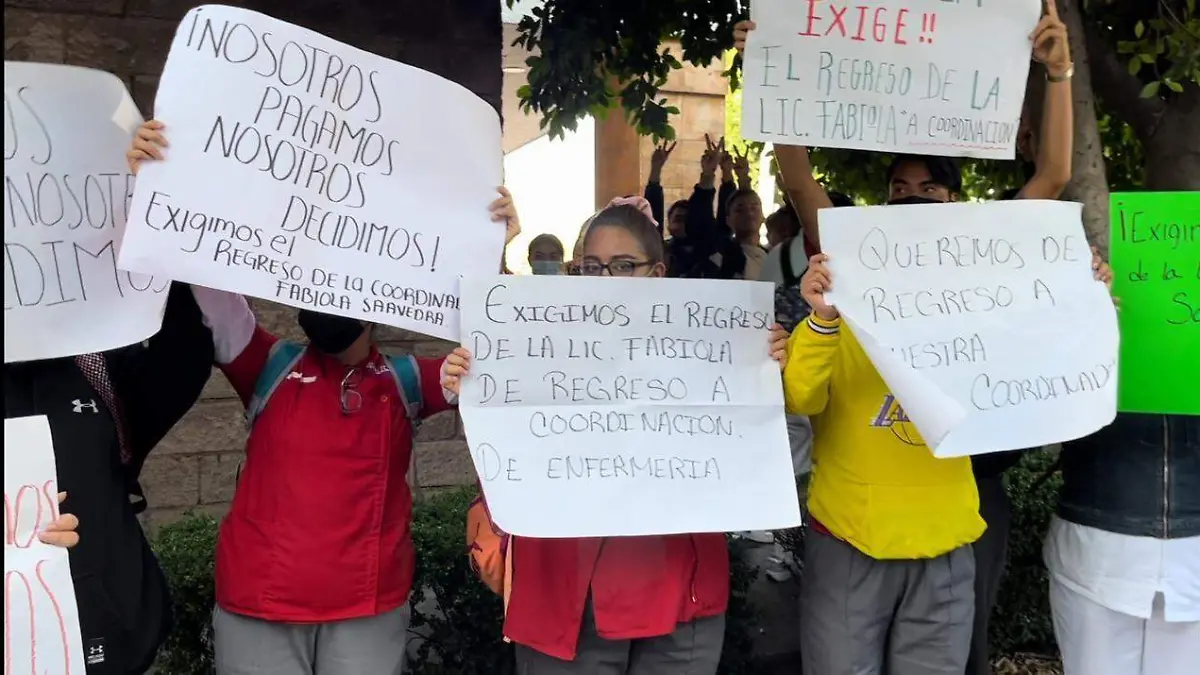 ¡NOSOTROS
PAGAMOS
NOSOTROS
DECIDIMOS!
EXIGIMOS EL
REGRESO DE LA COORDINA
FABIOLA SAAVEDRA
EXIGE!!
EL REGRESO DE LA
LIC. FABIOLA "A COORDINACION"
EXIGIMOS EL REGRESO
DE LA LIC. FABIOLA
DE REGRESO A
COORDINACION.
DE ENFERMERIA
QUEREMOS DE
REGRESO A
COORDINAD
¡Exigim
de la
UNDER ARMOUR